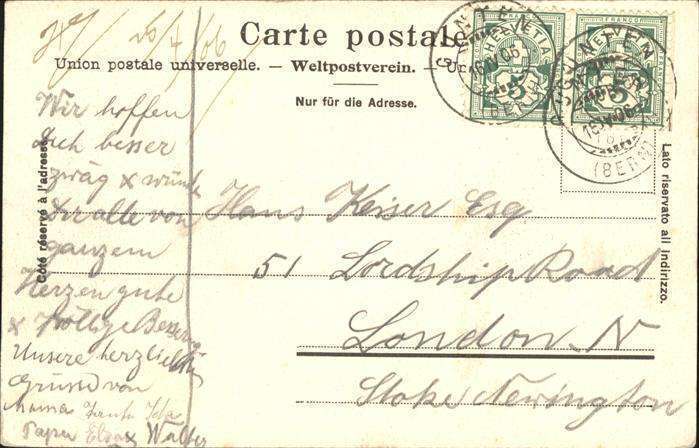 Carte postale
Union postale universelle. — Weltpostverein. —
Nur für die Adresse.
Côté réservé à l'adresse.
Lato riservato all indirizzo.
HELVETIA
FRANCO
5
HELVETIA
FRANCO
5
(BERN)
Wir hoffen
Dich besser
zwäg &
Dir alle von
ganzem
Herzen gute
& völlige
Unsere herzlichen
Grüsse von
Mama Tante Ida
Papa Elsa & Walter
Hans Keiser Esq
51 Lordship Road
London. N
Stoke Newington